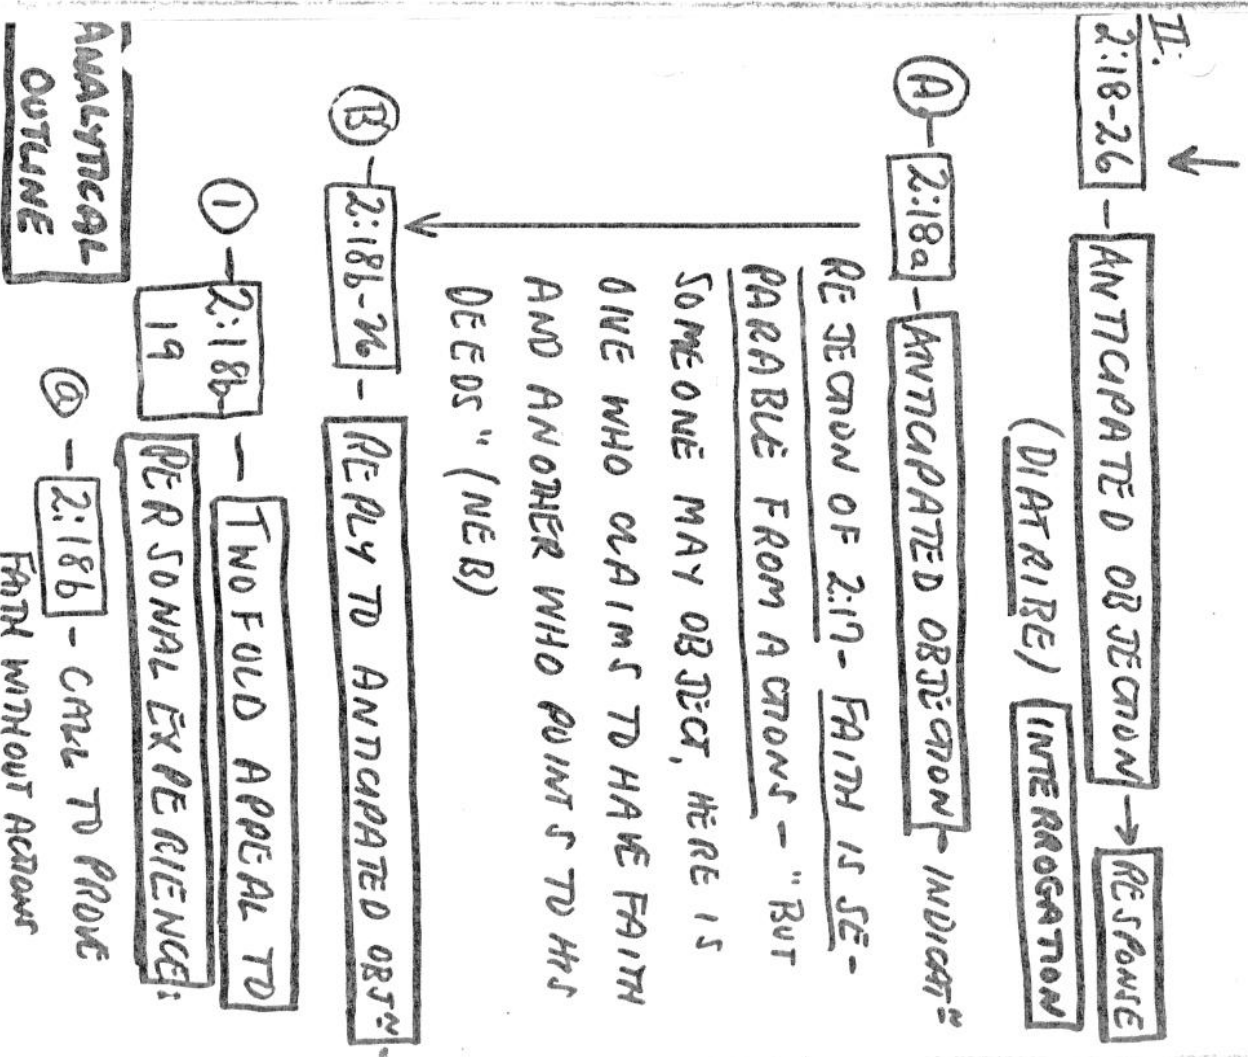 II.
2:18-26 - ANTICIPATED OBJECTION → RESPONSE
(DIATRIBE) INTERROGATION
A - 2:18a - ANTICIPATED OBJECTION - INDICATN
REJECTION OF 2:17 - FAITH IS SE-
PARABLE FROM ACTIONS - "BUT
SOMEONE MAY OBJECT, HERE IS
ONE WHO CLAIMS TO HAVE FAITH
AND ANOTHER WHO POINTS TO HIS
DEEDS" (NEB)
B - 2:18b-26 - REPLY TO ANTICIPATED OBJN.
1 - 2:18b- - TWOFOLD APPEAL TO
19 PERSONAL EXPERIENCE:
a - 2:18b - CALL TO PROVE
FAITH WITHOUT ACTIONS
ANALYTICAL
OUTLINE